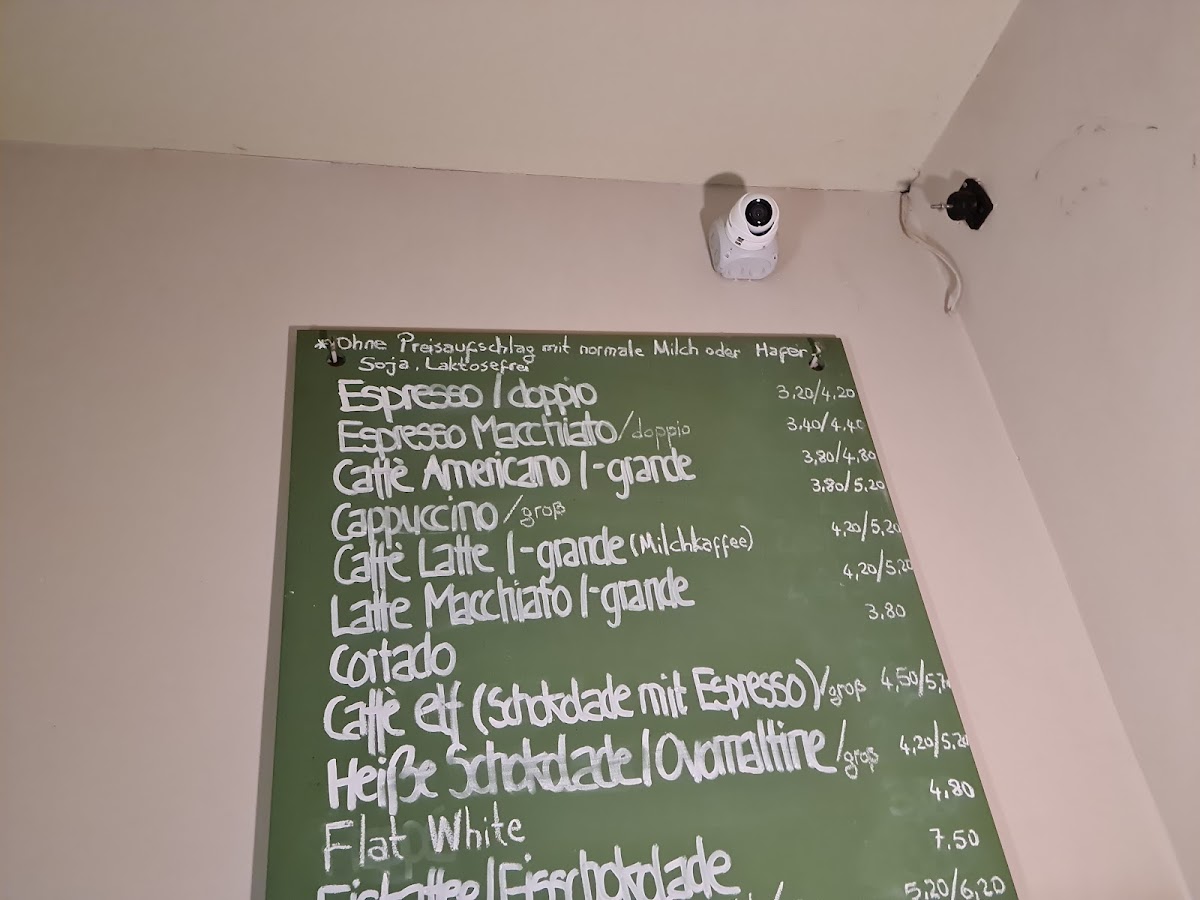 * Ohne Preisaufschlag mit normale Milch oder Hafer
Soja, Laktosefrei
Espresso / doppio 3,20/4,20
Espresso Macchiato/doppio 3,40/4,40
Caffè Americano /-grande 3,80/4,80
Cappuccino /groß 3,80/5,20
Caffè Latte /-grande (Milchkaffee) 4,20/5,20
Latte Macchiato /-grande 4,20/5,20
Cortado 3,80
Caffè elf (Schokolade mit Espresso)/groß 4,50/5,70
Heiße Schokolade/Ovomaltine /groß 4,20/5,20
Flat White 4,80
Eiskaffee/Eisschokolade 7.50
5,20/6,20